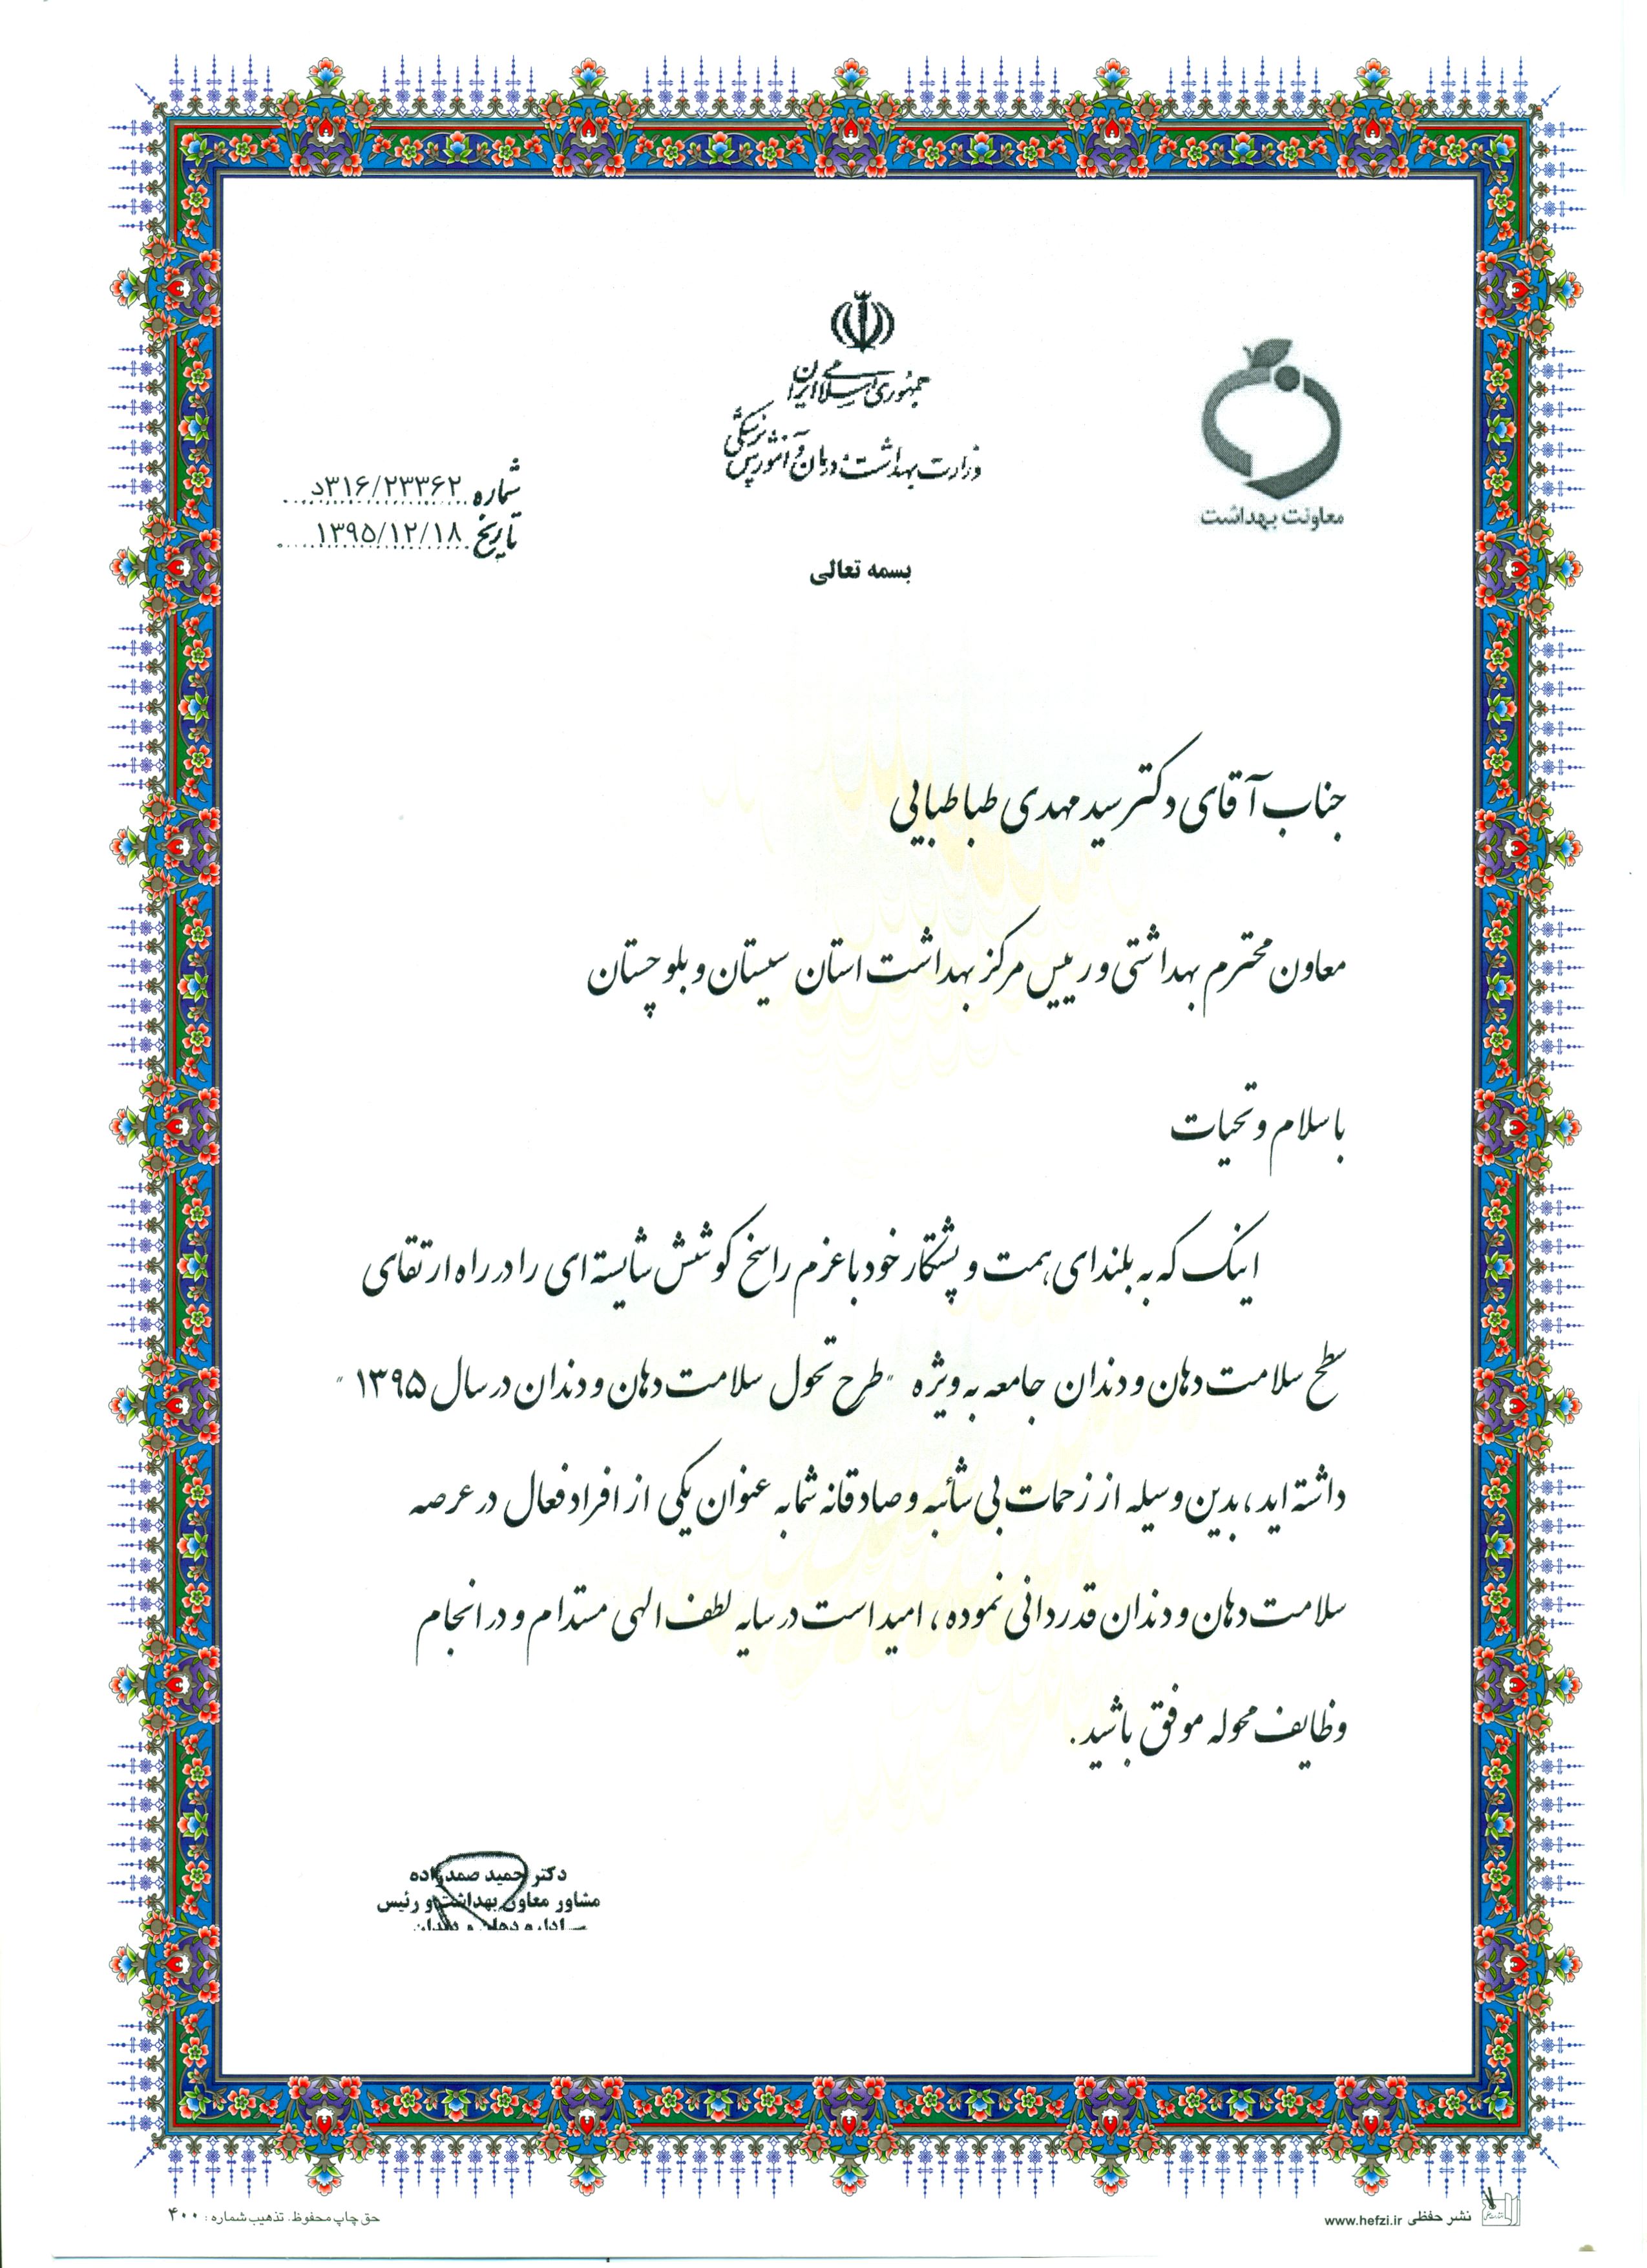 جمهوری اسلامی ایران
وزارت بهداشت، درمان و آموزش پزشکی
معاونت بهداشت
شماره ۳۱۶/۲۳۳۶۲د
تاریخ ۱۳۹۵/۱۲/۱۸
بسمه تعالی
جناب آقای دکتر سید مهدی طباطبایی
معاون محترم بهداشتی و رییس مرکز بهداشت استان سیستان و بلوچستان
با سلام و تحیات
اینک که به بلندای همت و پشتکار خود با عزم راسخ کوشش شایسته ای را در راه ارتقای
سطح سلامت دهان و دندان جامعه به ویژه "طرح تحول سلامت دهان و دندان در سال ۱۳۹۵"
داشته اید، بدین وسیله از زحمات بی شائبه و صادقانه شما به عنوان یکی از افراد فعال در عرصه
سلامت دهان و دندان قدردانی نموده، امید است در سایه لطف الهی مستدام و در انجام
وظایف محوله موفق باشید.
دکتر حمید صمدزاده
مشاور معاون بهداشت و رئیس
اداره دهان و دندان
نشر حفظی www.hefzi.ir
حق چاپ محفوظ. تذهیب شماره: ۴۰۰